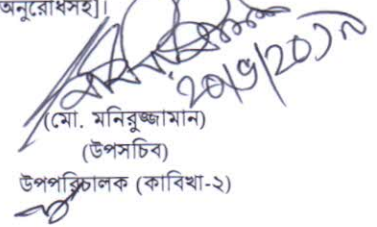 অনুরোধসহ]।
(মো. মনিরুজ্জামান)
(উপসচিব)
উপপরিচালক (কাবিখা-২)